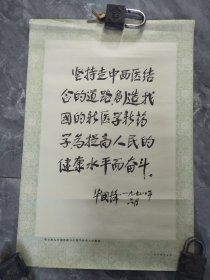 坚持走中西医结
合的道路创造我
国的新医学新药
学为提高人民的
健康水平而奋斗。
华国锋 一九七八年